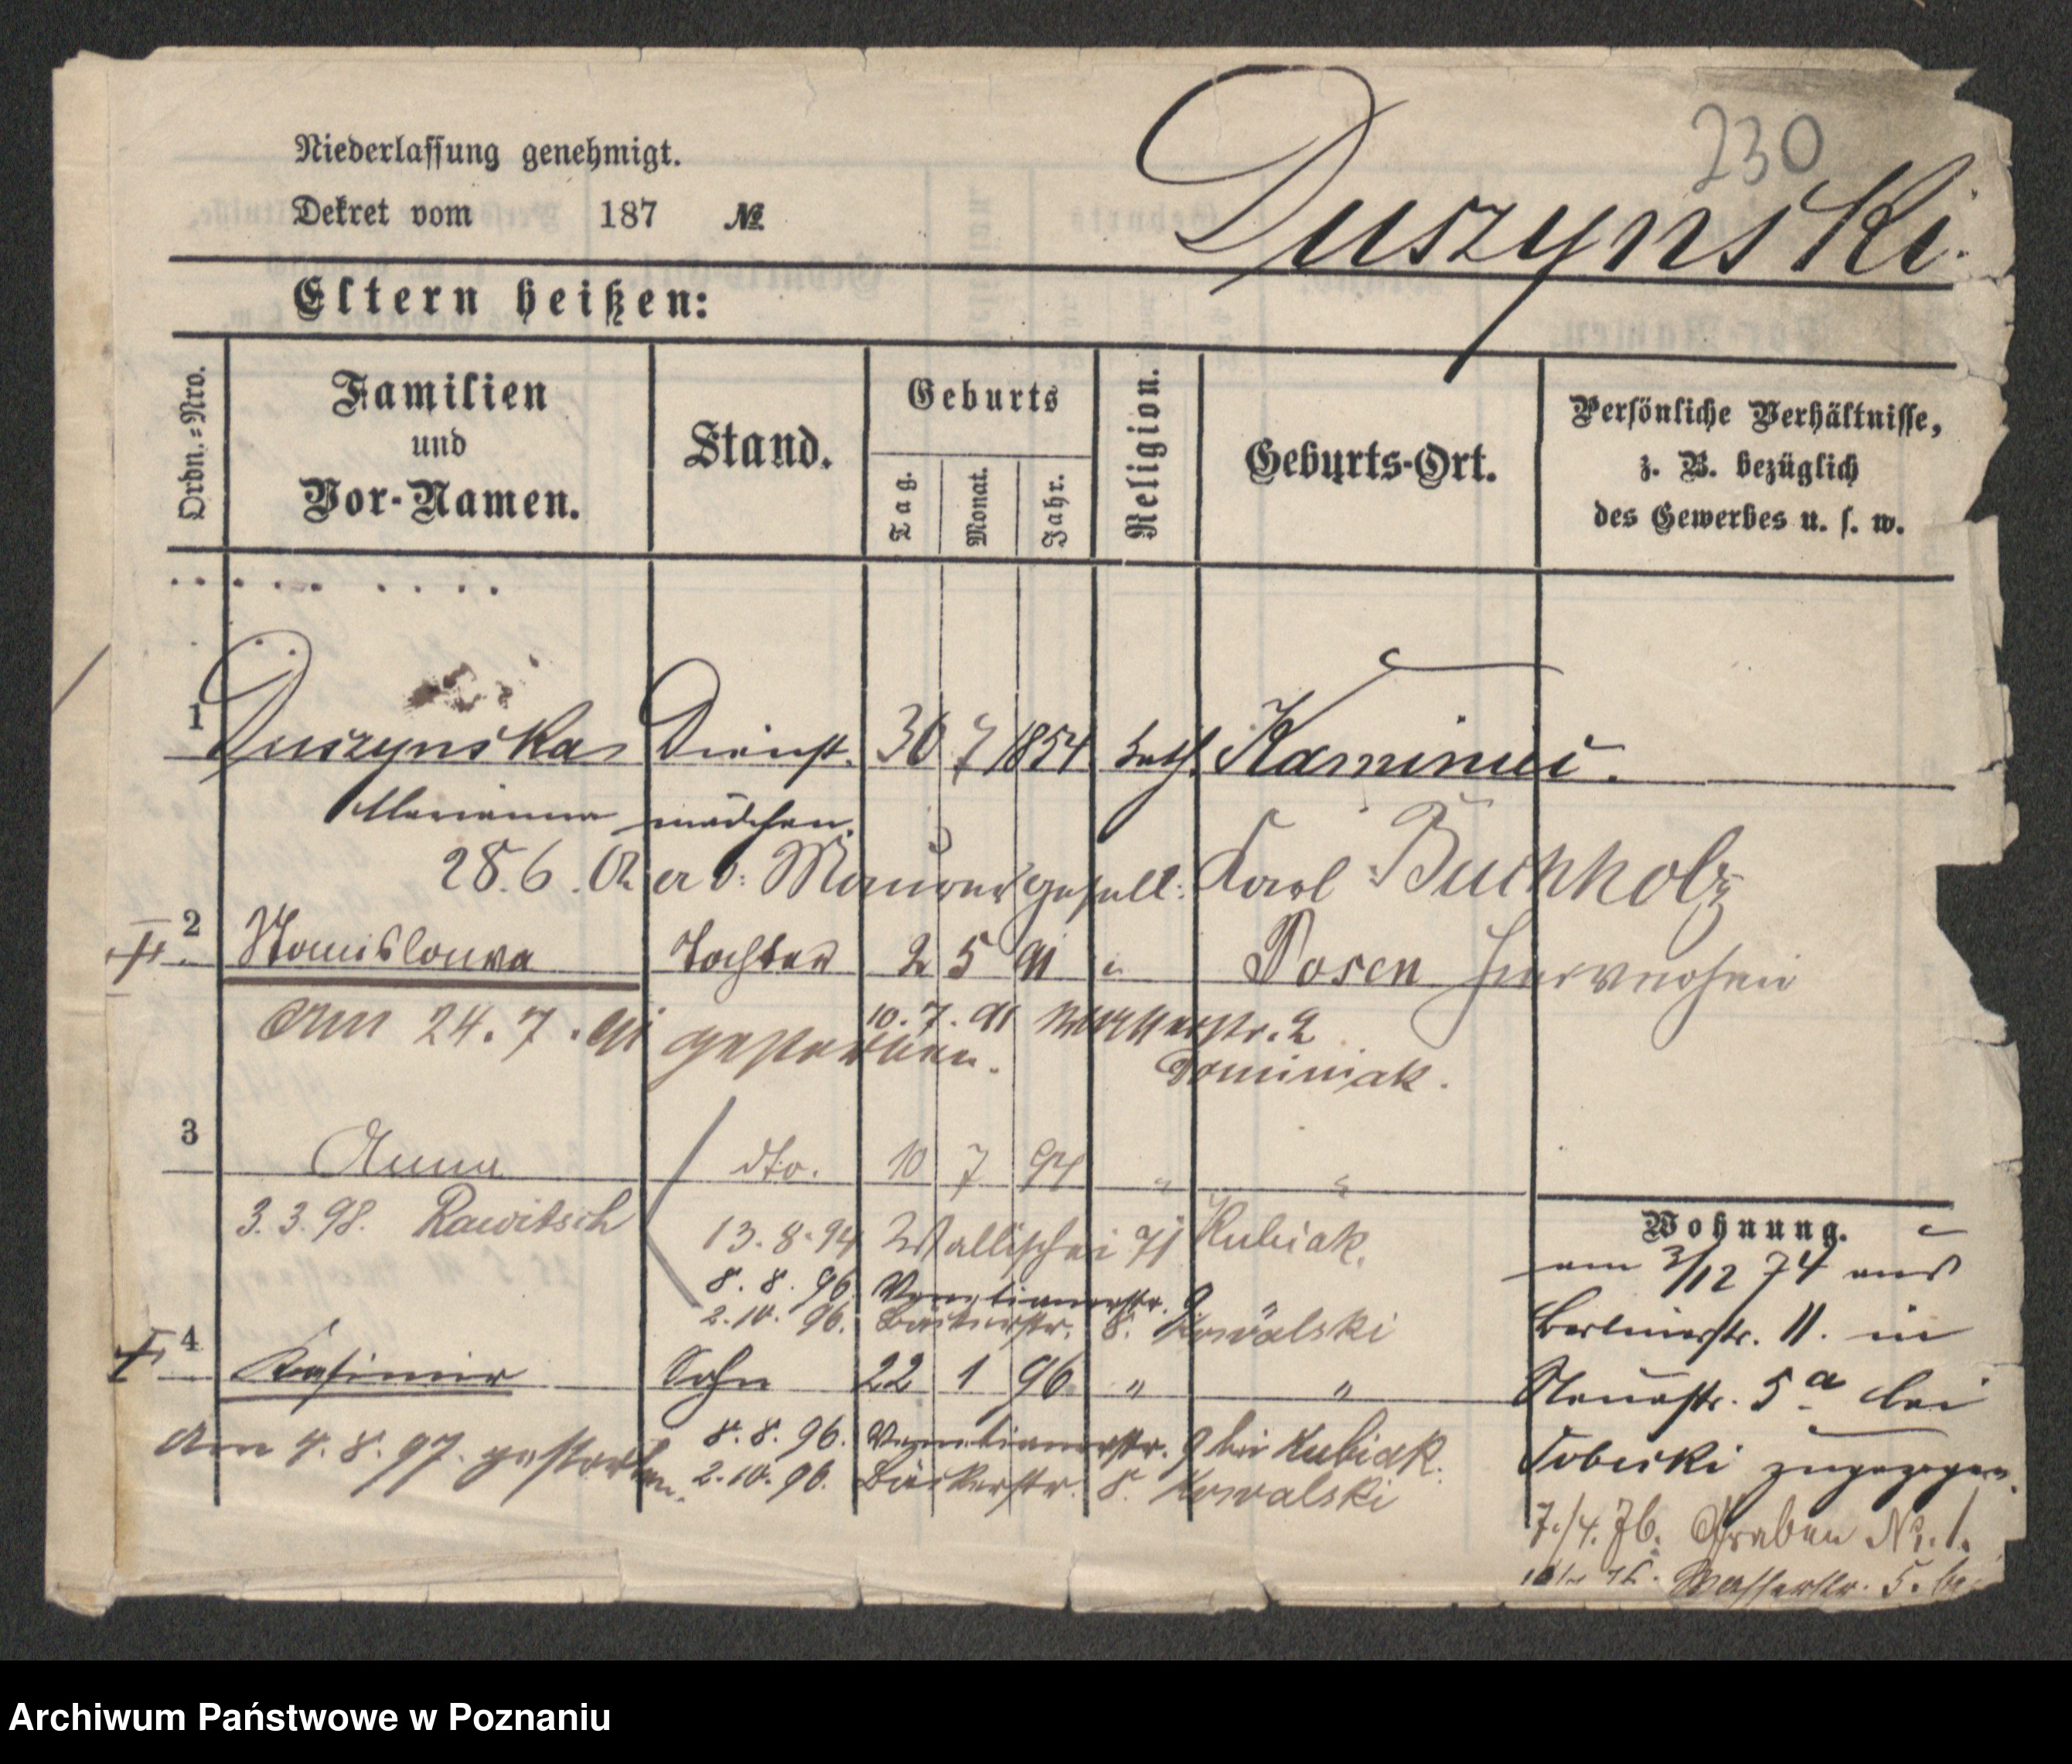 230
Duszynski.
Niederlassung genehmigt.
Dekret vom 187 №
Eltern heißen:
Ordn.=Nro.
Familien und Vor-Namen.
Stand.
Geburts
Tag.
Monat.
Jahr.
Religion.
Geburts-Ort.
Persönliche Verhältnisse,
z. B. bezüglich
des Gewerbes u. s. w.
1 Duszynska Dienst- 30 7 1854 kath.
Marianna mädchen.
28.6.02 Maurergesell: Karl Buchholz
2 Stanislawa Tochter 2 5 91 " Posen
10.7.91 2
am 24.7.91 gestorben. Dominiak.
3 Anna dto. 10 7 94 " "
3.3.98. Rawitsch
13.8.94 Wallischei 71 Kubiak.
8.8.96. Venetianerstr. 9
2.10.96. Bäckerstr. 8. Kowalski
4 Kasimir Sohn 22 1 96 " "
8.8.96. Venetianerstr. 9 bei Kubiak.
Am 4.8.97. gestorben. 2.10.96. Bäckerstr. 8. Kowalski
Wohnung.
am 3/12 74 aus
Berlinerstr. 11. in
Neuestr. 5a bei
zugezogen.
7./4.76. Graben Nr. 1.
Wasserstr. 5. bei
Archiwum Państwowe w Poznaniu